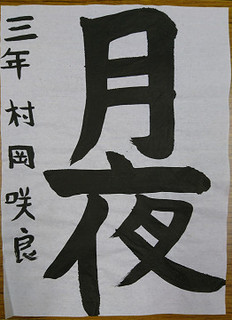 月夜
三年 村岡咲良